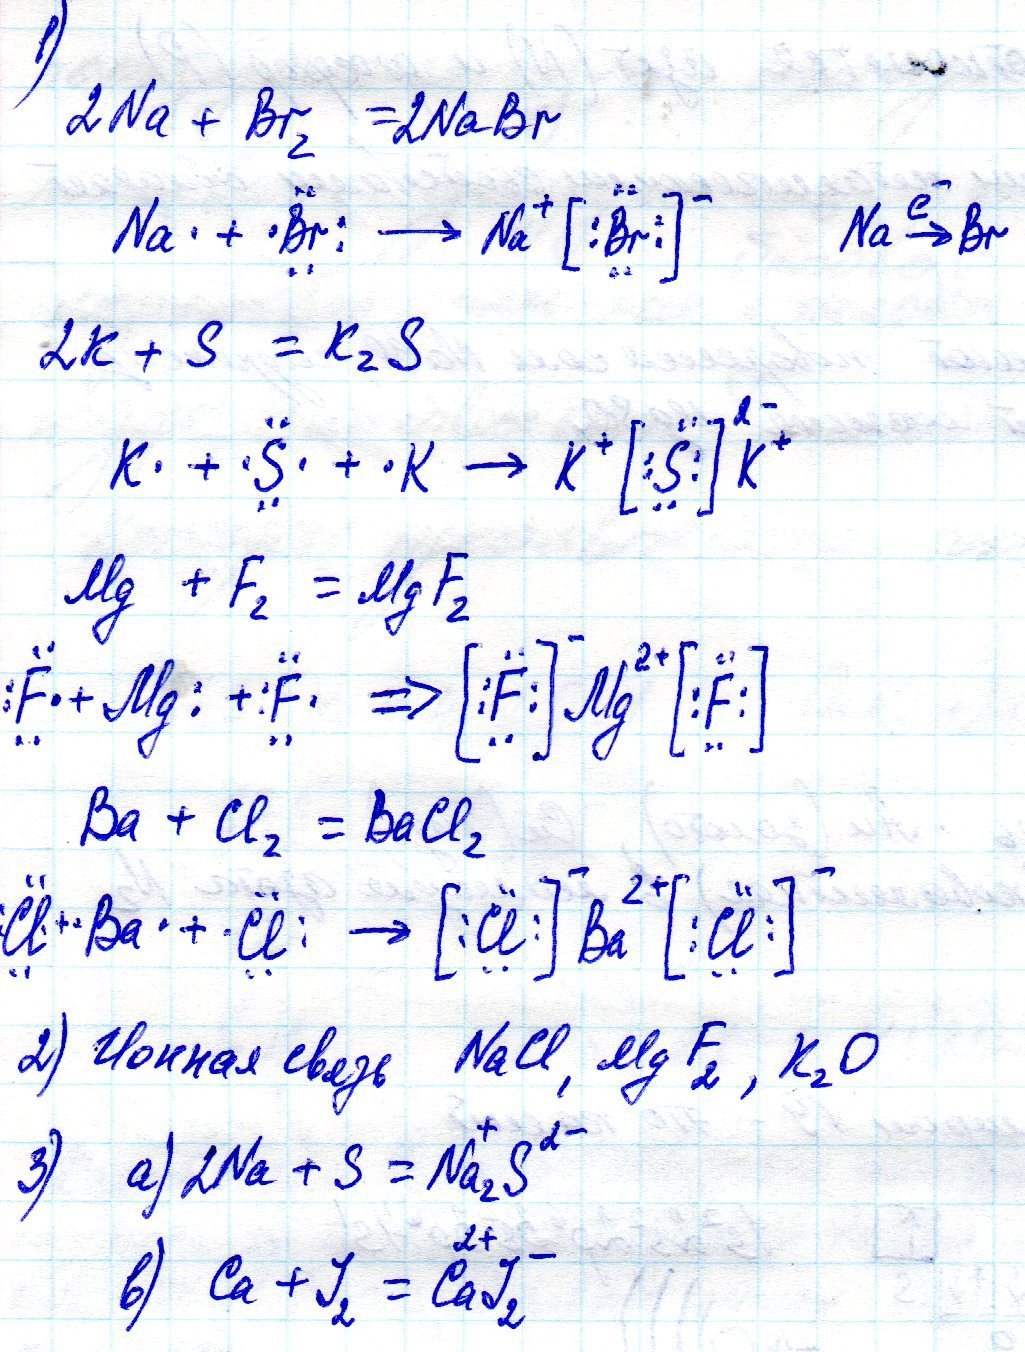 1)
2Na + Br₂ = 2NaBr
Na· + ·Br: → Na⁺ [:Br:]⁻ Na e⁻→ Br
2K + S = K₂S
K· + ·S· + ·K → K⁺ [:S:]²⁻ K⁺
Mg + F₂ = MgF₂
:F· + Mg: + :F· ⇒ [:F:]⁻ Mg²⁺ [:F:]
Ba + Cl₂ = BaCl₂
:Cl: + · Ba· + ·Cl: → [:Cl:]⁻ Ba²⁺ [:Cl:]⁻
2) Ионная связь NaCl, MgF₂, K₂O
3) а) 2Na + S = Na₂⁺S²⁻
в) Ca + J₂ = Ca²⁺J₂⁻